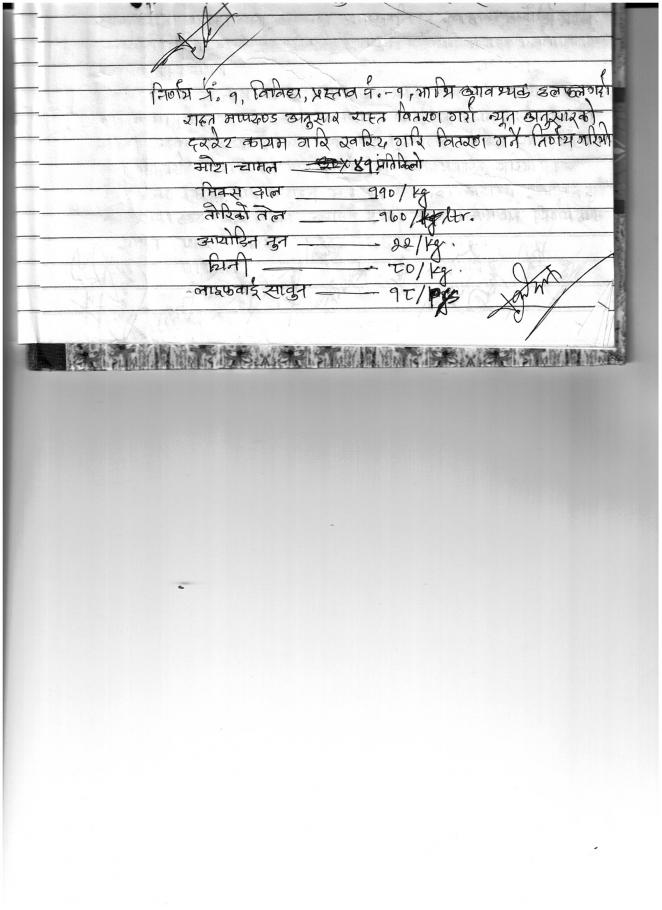 निर्णय नं. १, विविध, प्रस्ताव नं.-१, माथि आवश्यक छलफल गर्दा
राहत मापदण्ड अनुसार राहत वितरण गर्न न्यून अनुसारको
दररेट कायम गरि खरिद गरि वितरण गर्ने निर्णय गरियो
मोटा चामल ——— ४१ प्रतिकिलो
मिक्स दाल ——— ११०/kg
तोरिको तेल ——— १६०/ltr.
आयोडिन नुन ——— २२/kg.
चिनी ——— ८०/kg.
लाइफवाई सावुन ——— १८/pgs